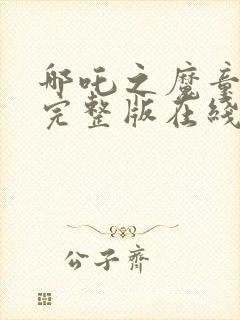 哪吒之魔童
完整版在线
公子齐